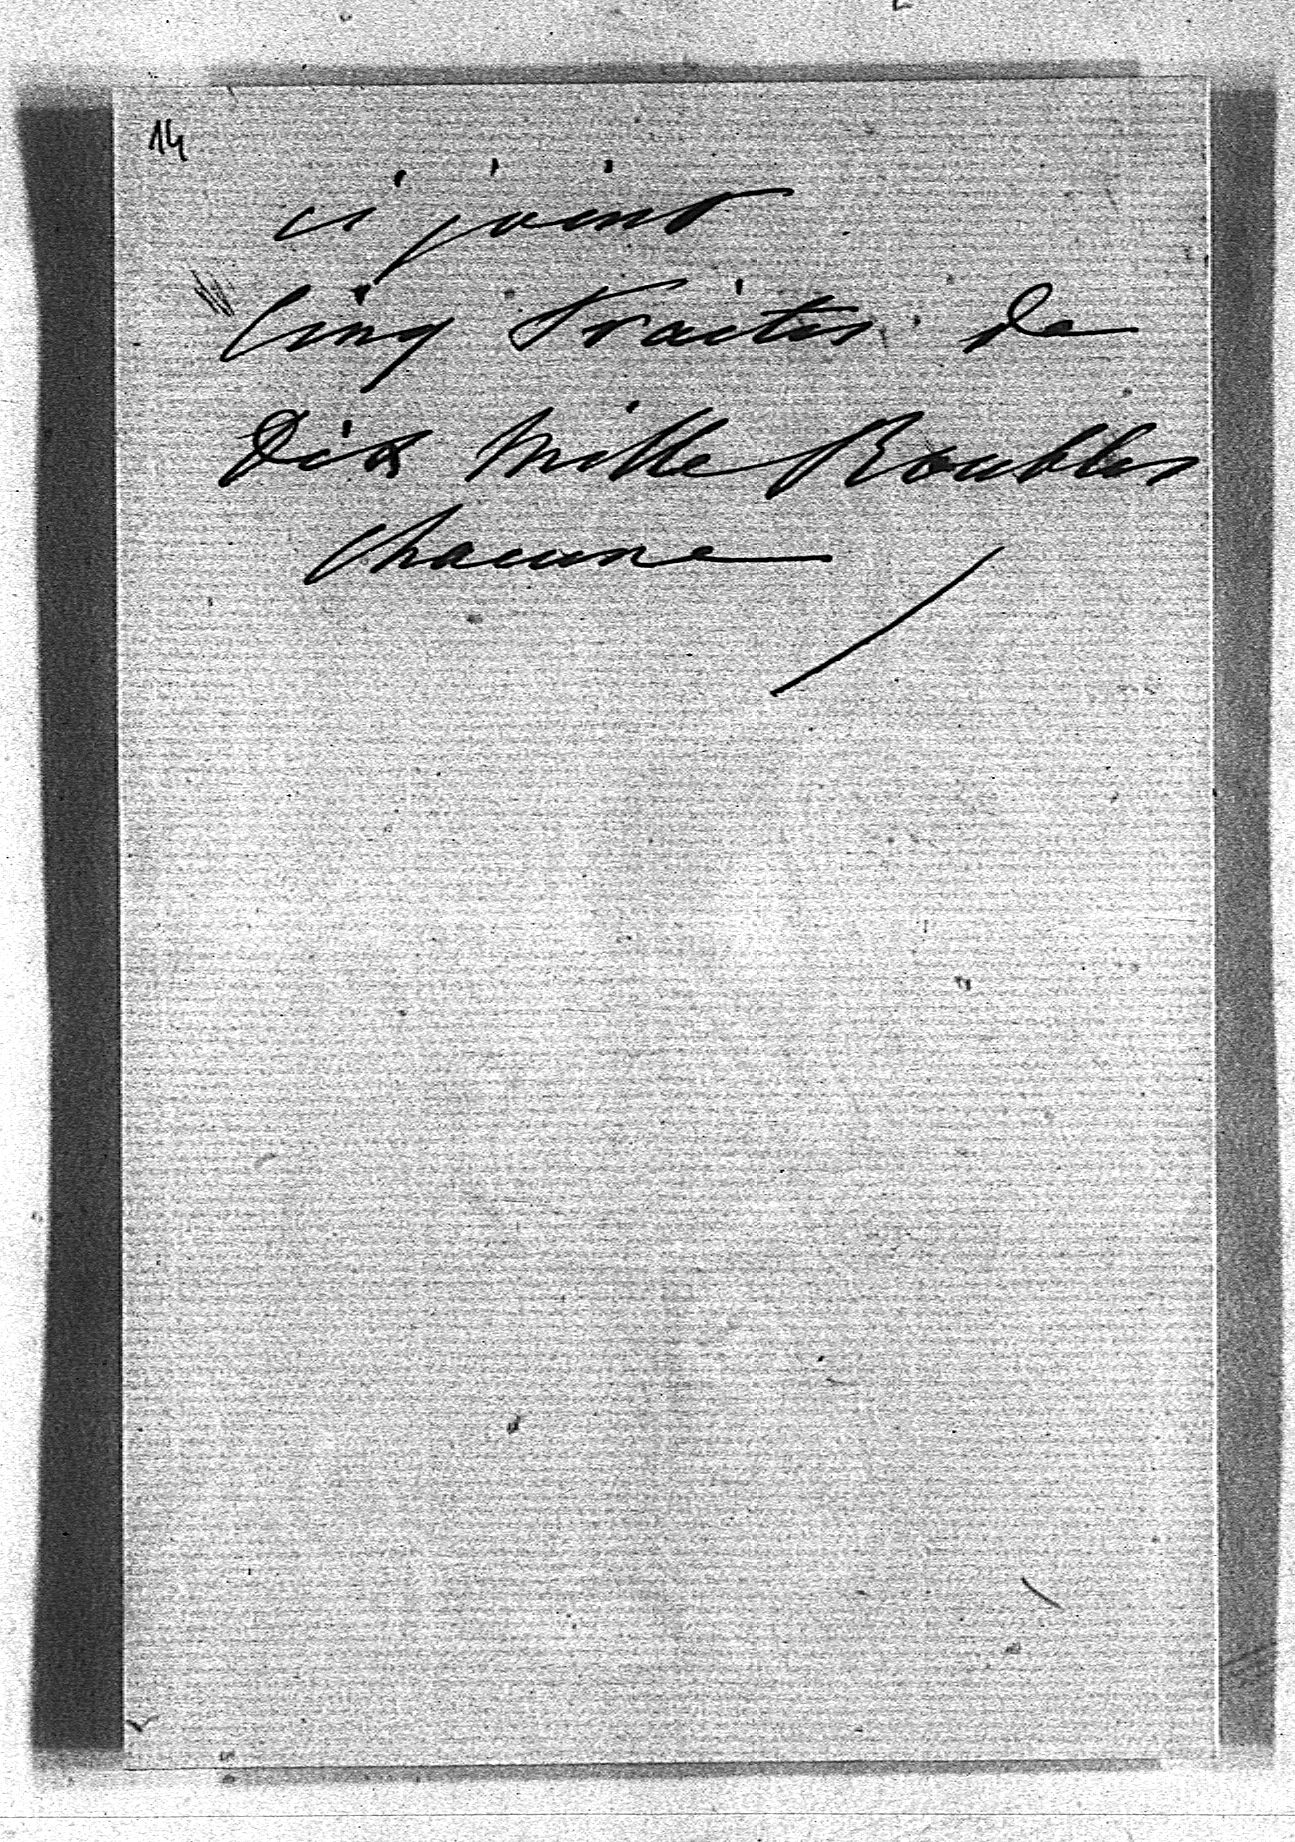 14
ci joint
Cinq Traites de
Dix Mille Roubles
chacune